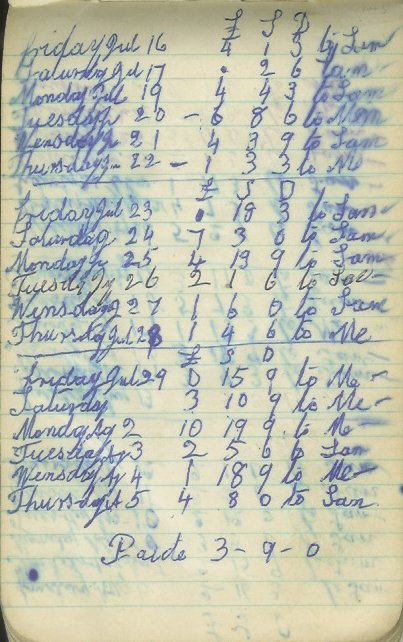 £ S D
Friday Jul 16 4 1 3 to Sam
Saturday Jul 17 . 2 6 Sam
Monday Jul 19 4 4 3 to Sam
Tuesday 20 - 6 8 6 to Mem
Wensday 21 4 3 9 to Sam
Thursday 22 - 1 3 3 to Me
£ S D
Friday Jul 23 . 18 3 to Sam
Saturday 24 7 3 0 to Sam
Monday 25 4 19 9 to Sam
Tuesday Jy 26 2 1 6 to
Wensday 27 1 6 0 to Sam
Thursday Jul 28 1 4 6 to Me
£ S D
Friday Jul 29 0 15 9 to Me -
Saturday 3 10 9 to Me -
Monday Ag 2 10 19 9 to Me -
Tuesday Ag 3 2 5 6 to Sam
Wensday Ag 4 1 18 9 to Me -
Thursday A 5 4 8 0 to Sam
Paide 3 - 9 - 0